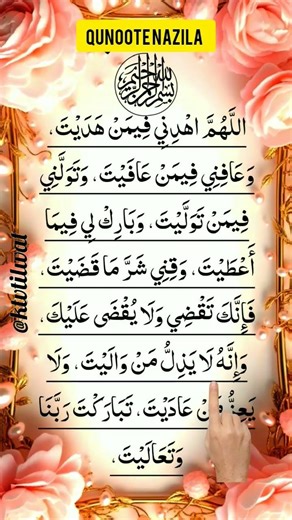 QUNOOTE NAZILA
بسم الله الرحمن الرحيم
اللَّهُمَّ اهْدِنِي فِيمَنْ هَدَيْتَ،
وَعَافِنِي فِيمَنْ عَافَيْتَ، وَتَوَلَّنِي
فِيمَنْ تَوَلَّيْتَ، وَبَارِكْ لِي فِيمَا
أَعْطَيْتَ، وَقِنِي شَرَّ مَا قَضَيْتَ،
فَإِنَّكَ تَقْضِي وَلَا يُقْضَى عَلَيْكَ،
وَإِنَّهُ لَا يَذِلُّ مَنْ وَالَيْتَ، وَلَا
يَعِزُّ مَنْ عَادَيْتَ، تَبَارَكْتَ رَبَّنَا
وَتَعَالَيْتَ،